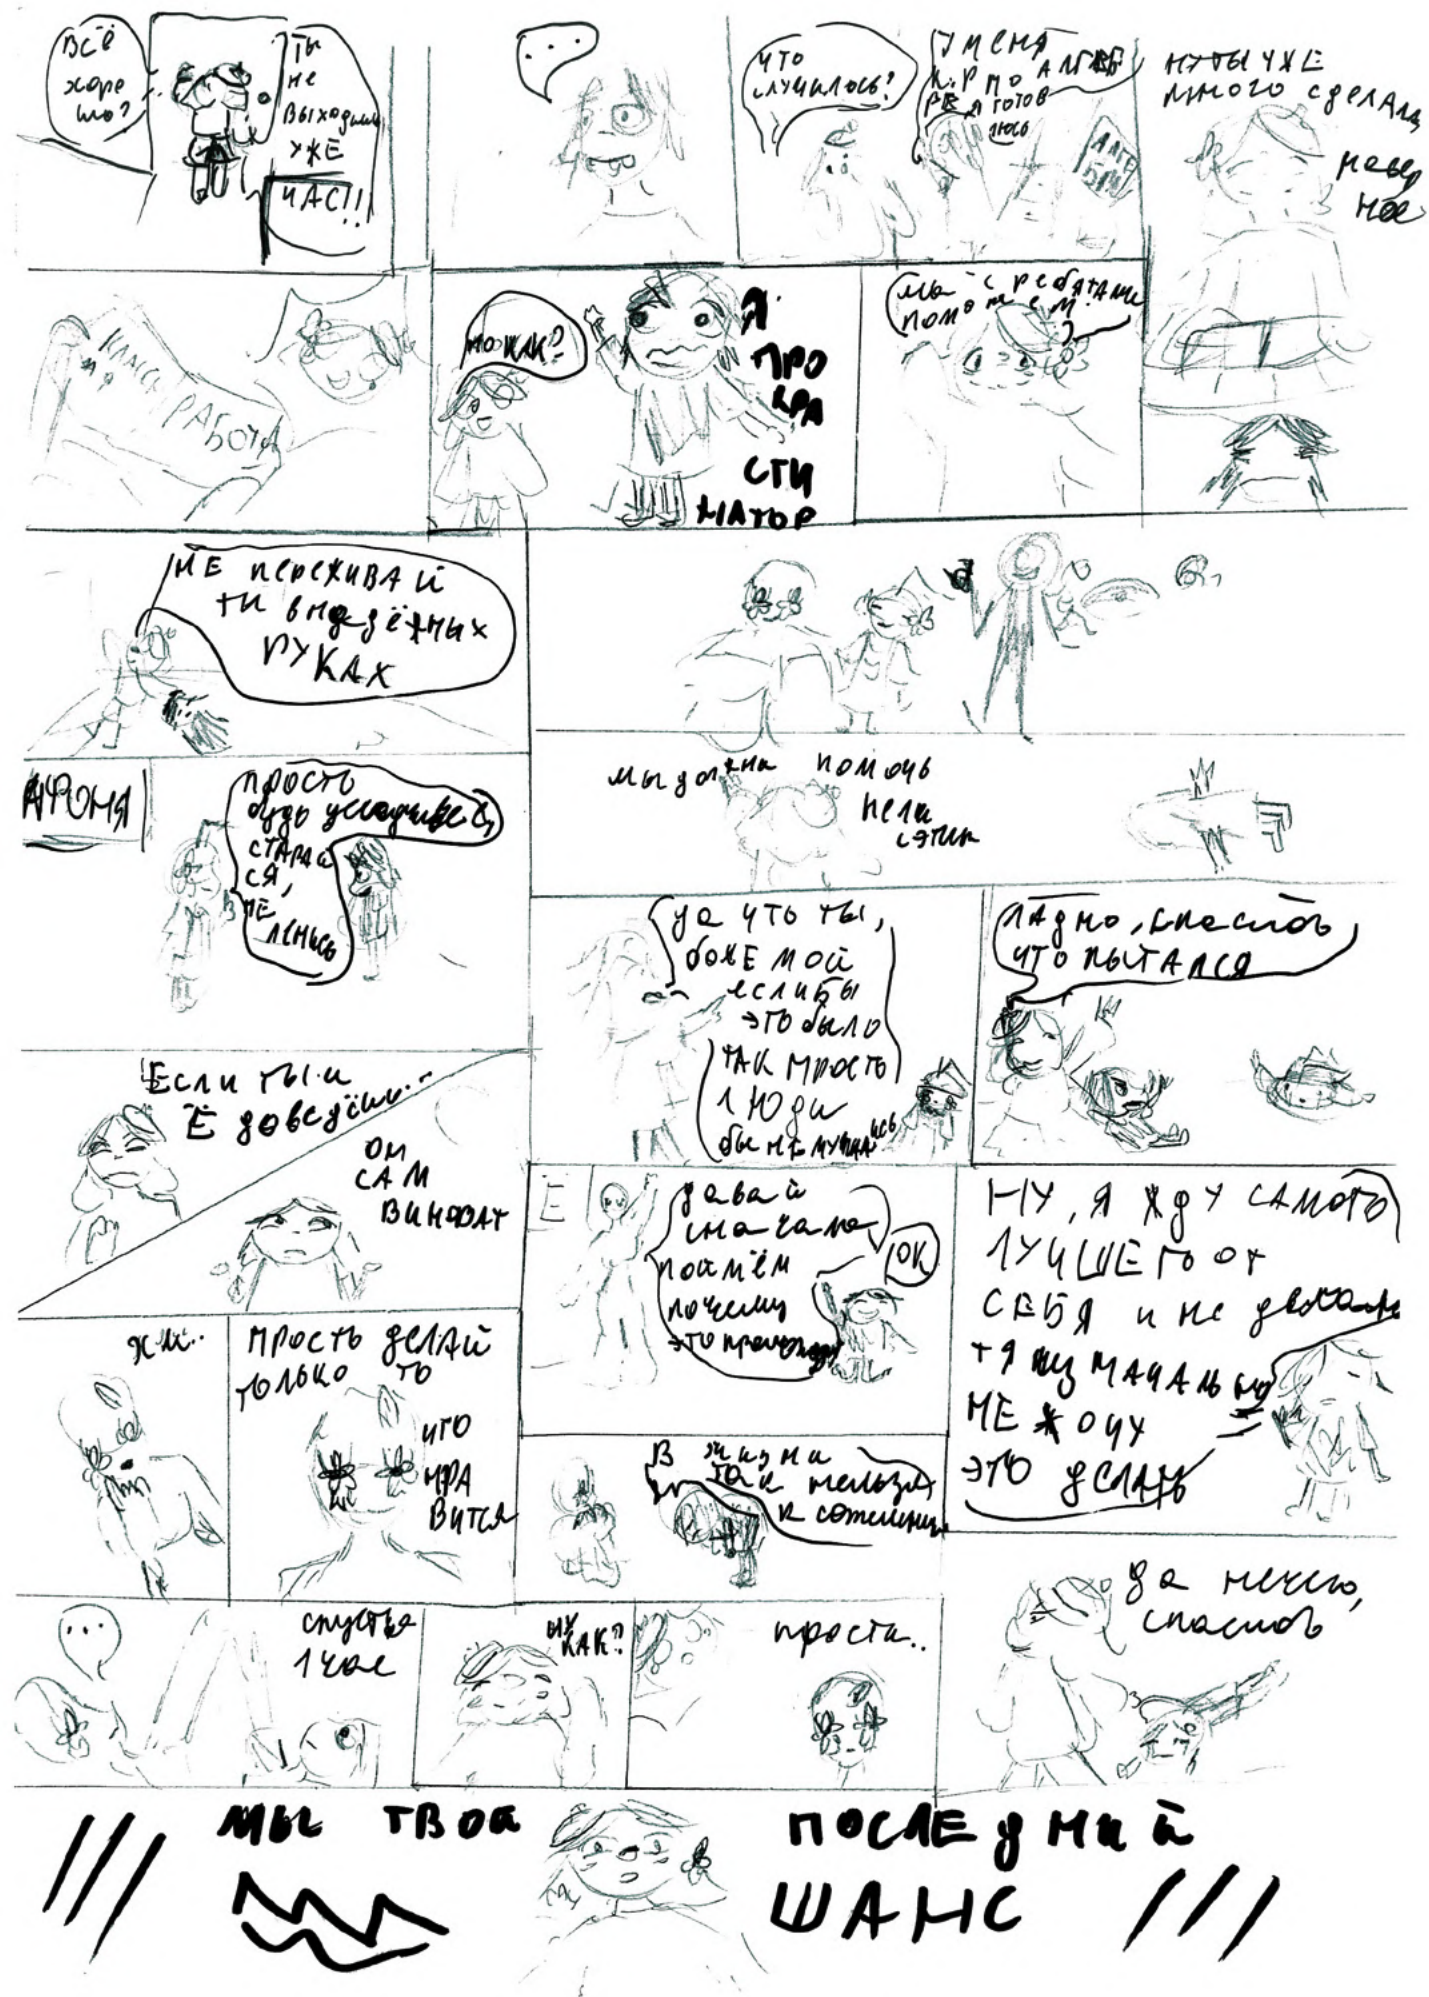 ВСЁ
хоро
шо?
ТЫ
не
выходишь
УЖЕ
ЧАС!!
...
ЧТО
случилось?
У МЕНЯ
К.Р ПО АЛГЕБ
РЕ Я ГОТОВ
ЛЮСЬ
АЛГЕ
БРА
НУ ТЫ УЖЕ
много сделала
навер
ное
КЛАСС
НАЯ
РАБОТА
НО КАК?
Я
ПРО
КРА
СТИ
НАТОР
мы с ребятами
поможем!
НЕ переживай
ты в надёжных
РУКАХ
АФОНЯ
просто
будь усидчивей,
СТАРАЙ
СЯ,
НЕ
ЛЕНИСЬ
мы должны помочь
нели
с этим
да что ты,
боже мой
если бы
это было
ТАК ПРОСТО
люди
бы не мучались
ЛАДНО, спасибо,
что пытался
Если ты и
Ё доведёшь...
ОН
САМ
ВИНОВАТ
Ё
давай
сначала
поймём
почему
это происходит
ОК
НУ, Я ЖДУ САМОГО
ЛУЧШЕГО ОТ
СЕБЯ и не делаю
НЕ ХОЧУ
ЭТО ДЕЛАТЬ
хм..
ПРОСТЬ ДЕЛАЙ
ТОЛЬКО ТО
ЧТО
НРА
ВИТСЯ
В жизни
так нельзя
к сожалению
...
спустья
1 час
ну
КАК?
прости..
да нечего,
спасибо
МЫ ТВОй ПОСЛЕДНИЙ
ШАНС